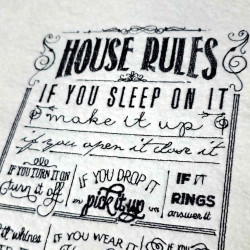 HOUSE RULES
IF YOU SLEEP ON IT
make it up
if you open it close it
IF YOU TURN IT ON
turn it off
IF YOU DROP IT
pick it up
IF IT
RINGS
answer it
it whines
IF YOU WEAR IT